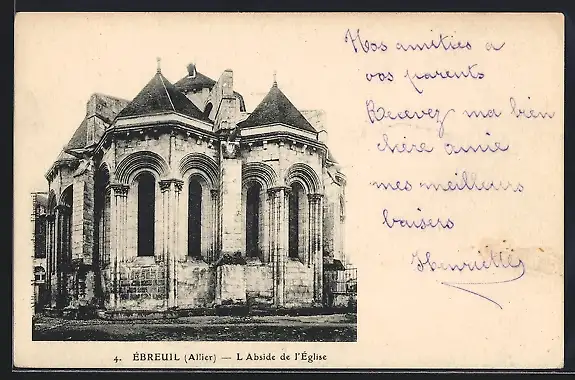 Nos amitiés a
vos parents
Recevez ma bien
chère amie
mes meilleurs
baisers
Henriette
4. ÉBREUIL (Allier) — L'Abside de l'Église